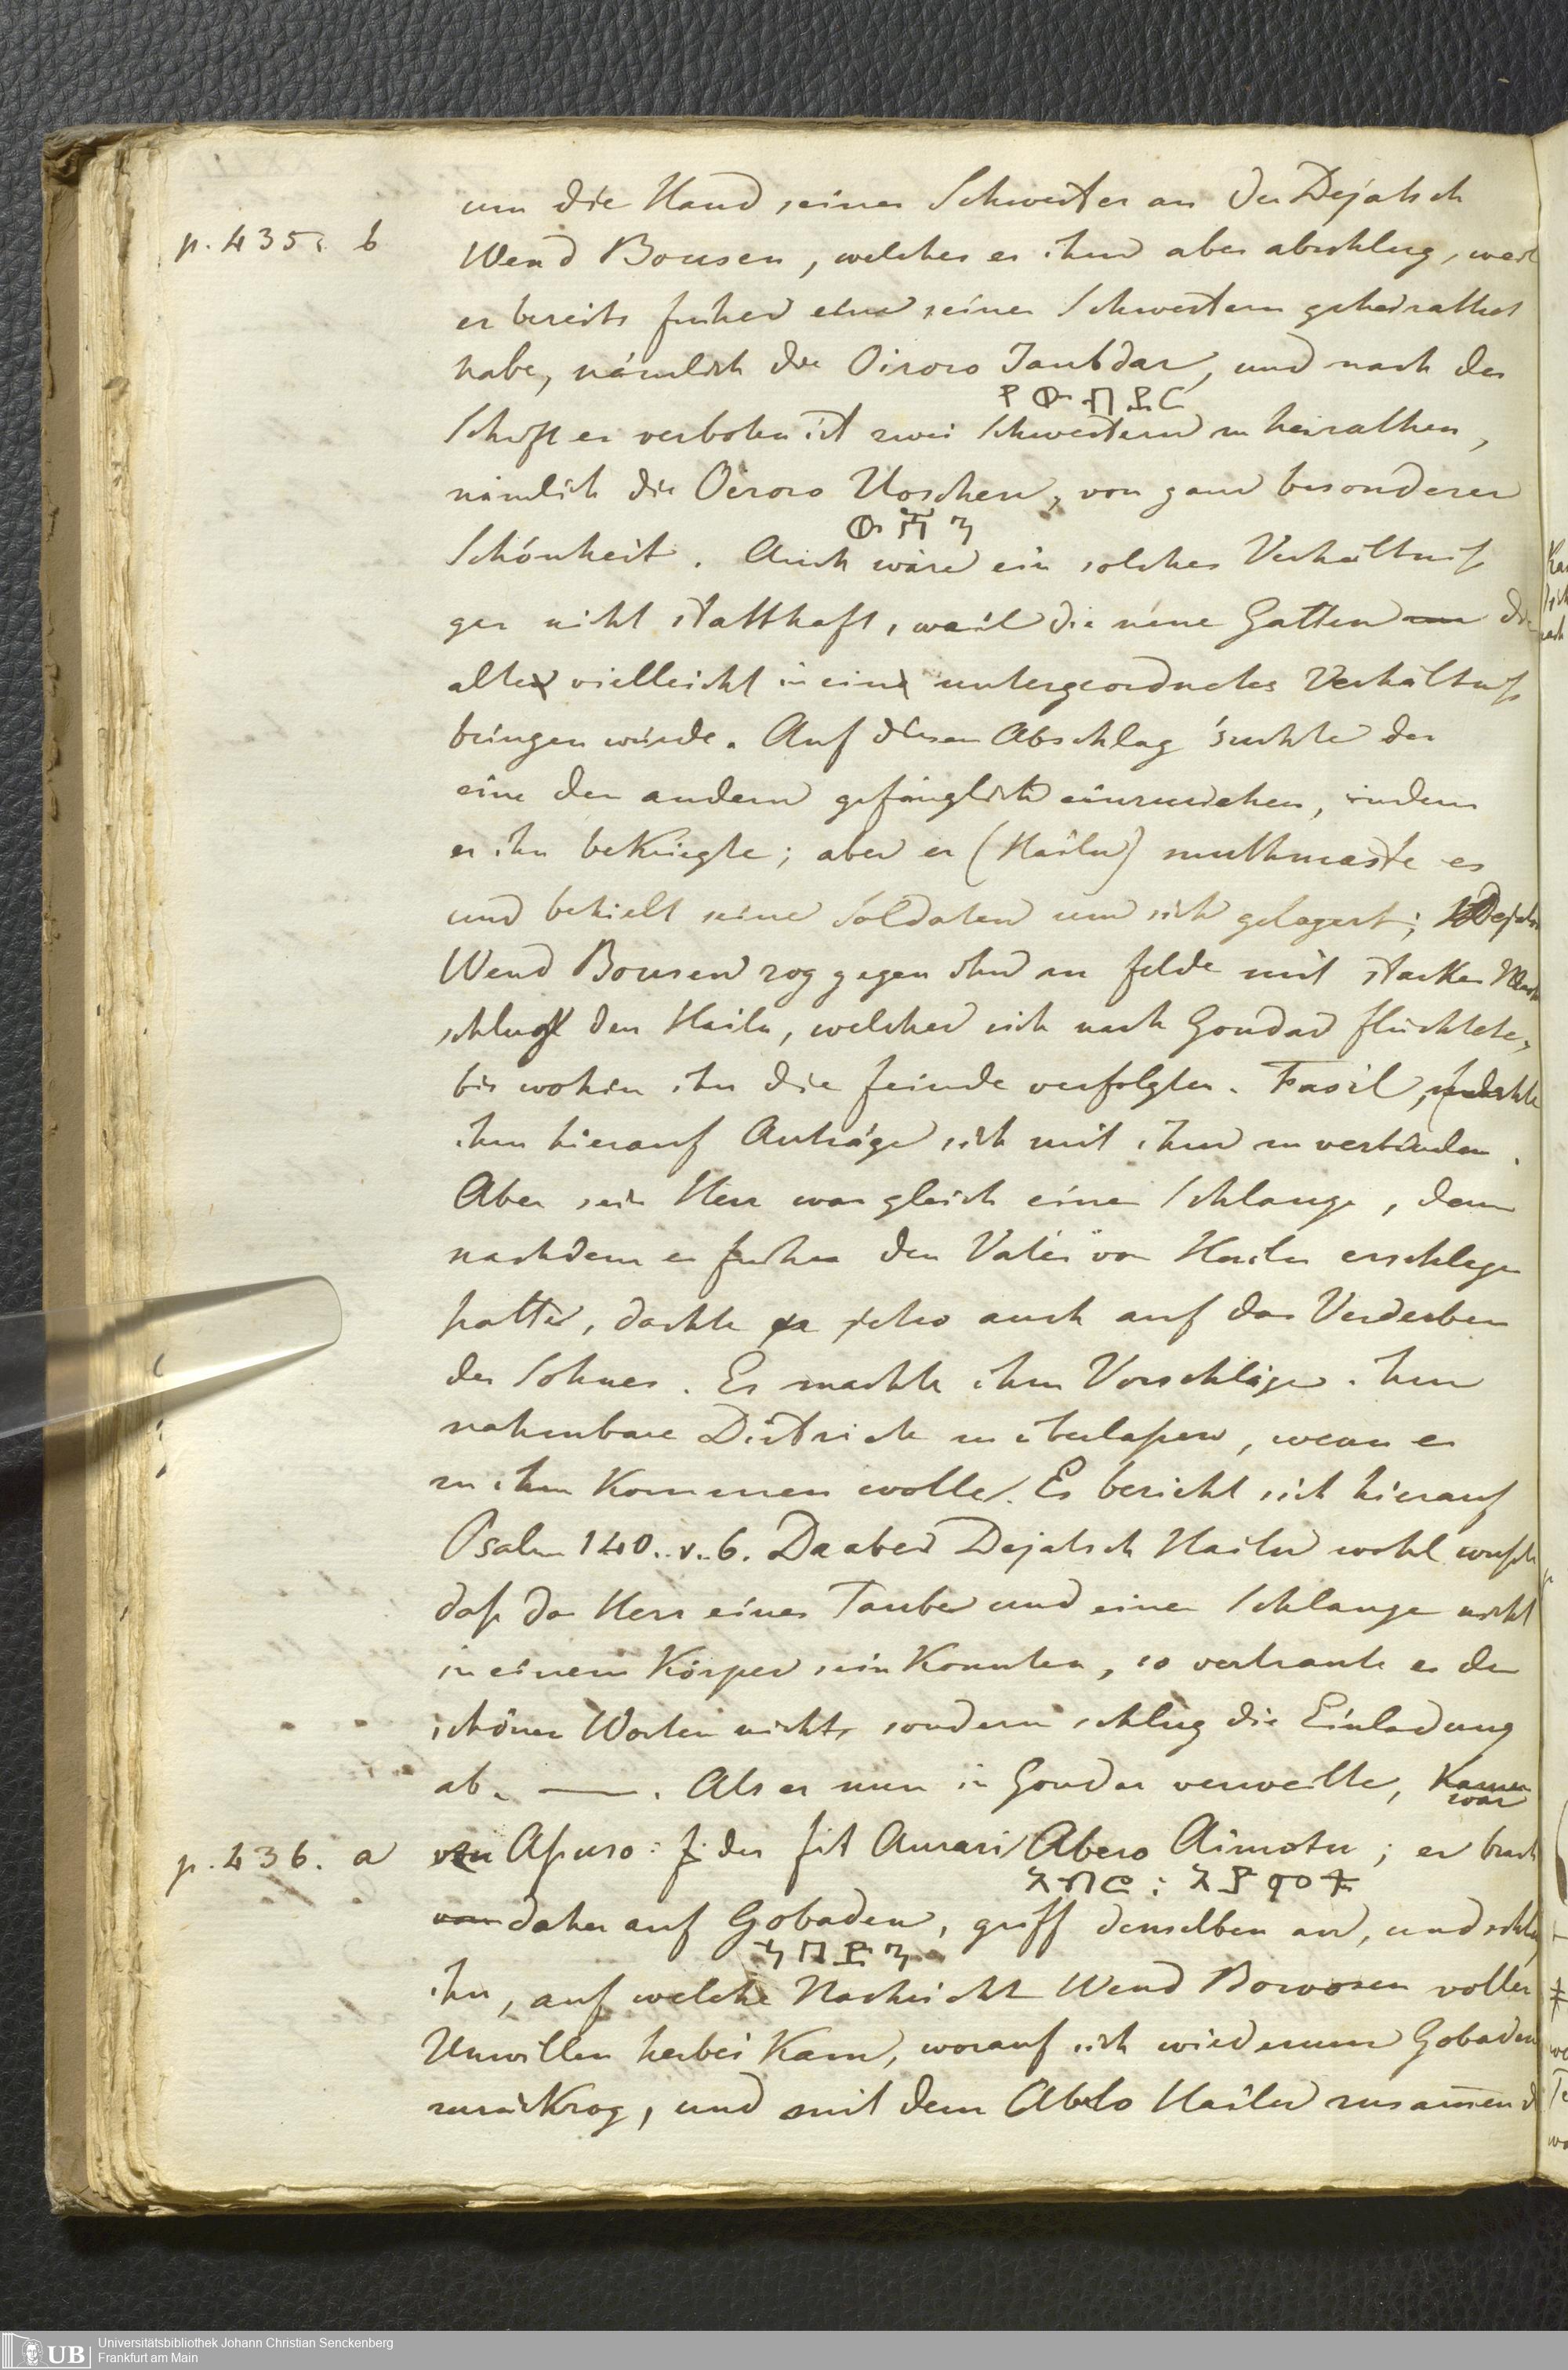 um die Hand seiner Schwester an. Der Dejatsch
p. 435. b
Wend Bousen, welcher es ihm aber abschlug, weil
er bereits früher eine seiner Schwestern geheirathet
habe, nämlich die Oisoro Taubdar, und nach der
Schrift es verboten ist zwei Schwestern zu heirathen,
nämlich die Oisoro Uoschen, von ganz besonderer
ውሸን
Schönheit. Auch wäre ein solches Verhältniß
gar nicht statthaft, weil die neue Gatten die
alte vielleicht in ein untergeordnetes Verhältniß
bringen würde. Auf diesen Abschlag suchte der
eine den andern gefänglich einzuziehen, indem
er ihn bekriegte; aber er (Hailu) muthmaste es
und behielt seine Soldaten um sich gelagert; Dejatsch
Wend Bousen zog gegen ihn zu felde mit starker Macht
schlug den Hailu, welcher sich nach Gondar flüchtete,
bis wohin ihn die feinde verfolgten. Fasil,
ihm hierauf Anträge sich mit ihm zu verbinden.
Aber sein Herz war gleich einer Schlange, denn
nachdem er früher den Vater von Hailu erschlagen
hatte, dachte er jetzo auch auf das Verderben
des Sohnes. Er machte ihm Vorschläge ihm
nahmbare Districte zu überlaßen, wenn er
zu ihm kommen wolle. Es bericht sich hierauf
Psalm 140. v. 6. Da aber Dejatsch Hailu wohl wußte
daß das Herz einer Taube und einer Schlange nicht
in einem Körper sein konnten, so vertraute er den
schönen Worten nicht, sondern schlug die Einladung
ab. —. Als er nun in Gondar verweilte, kam
war
p. 436. a
von Apuso: der fit Aurari Abero Aimotu; er brach
daher auf Gobaden, griff denselben an, und schlug
ihn, auf welche Nachricht Wend Bowosen voller
Unwillen herbei kam, worauf sich wiederum Gobaden
zurückzog, und mit dem Abeto Hailu zusammen
Universitätsbibliothek Johann Christian Senckenberg
UB
Frankfurt am Main